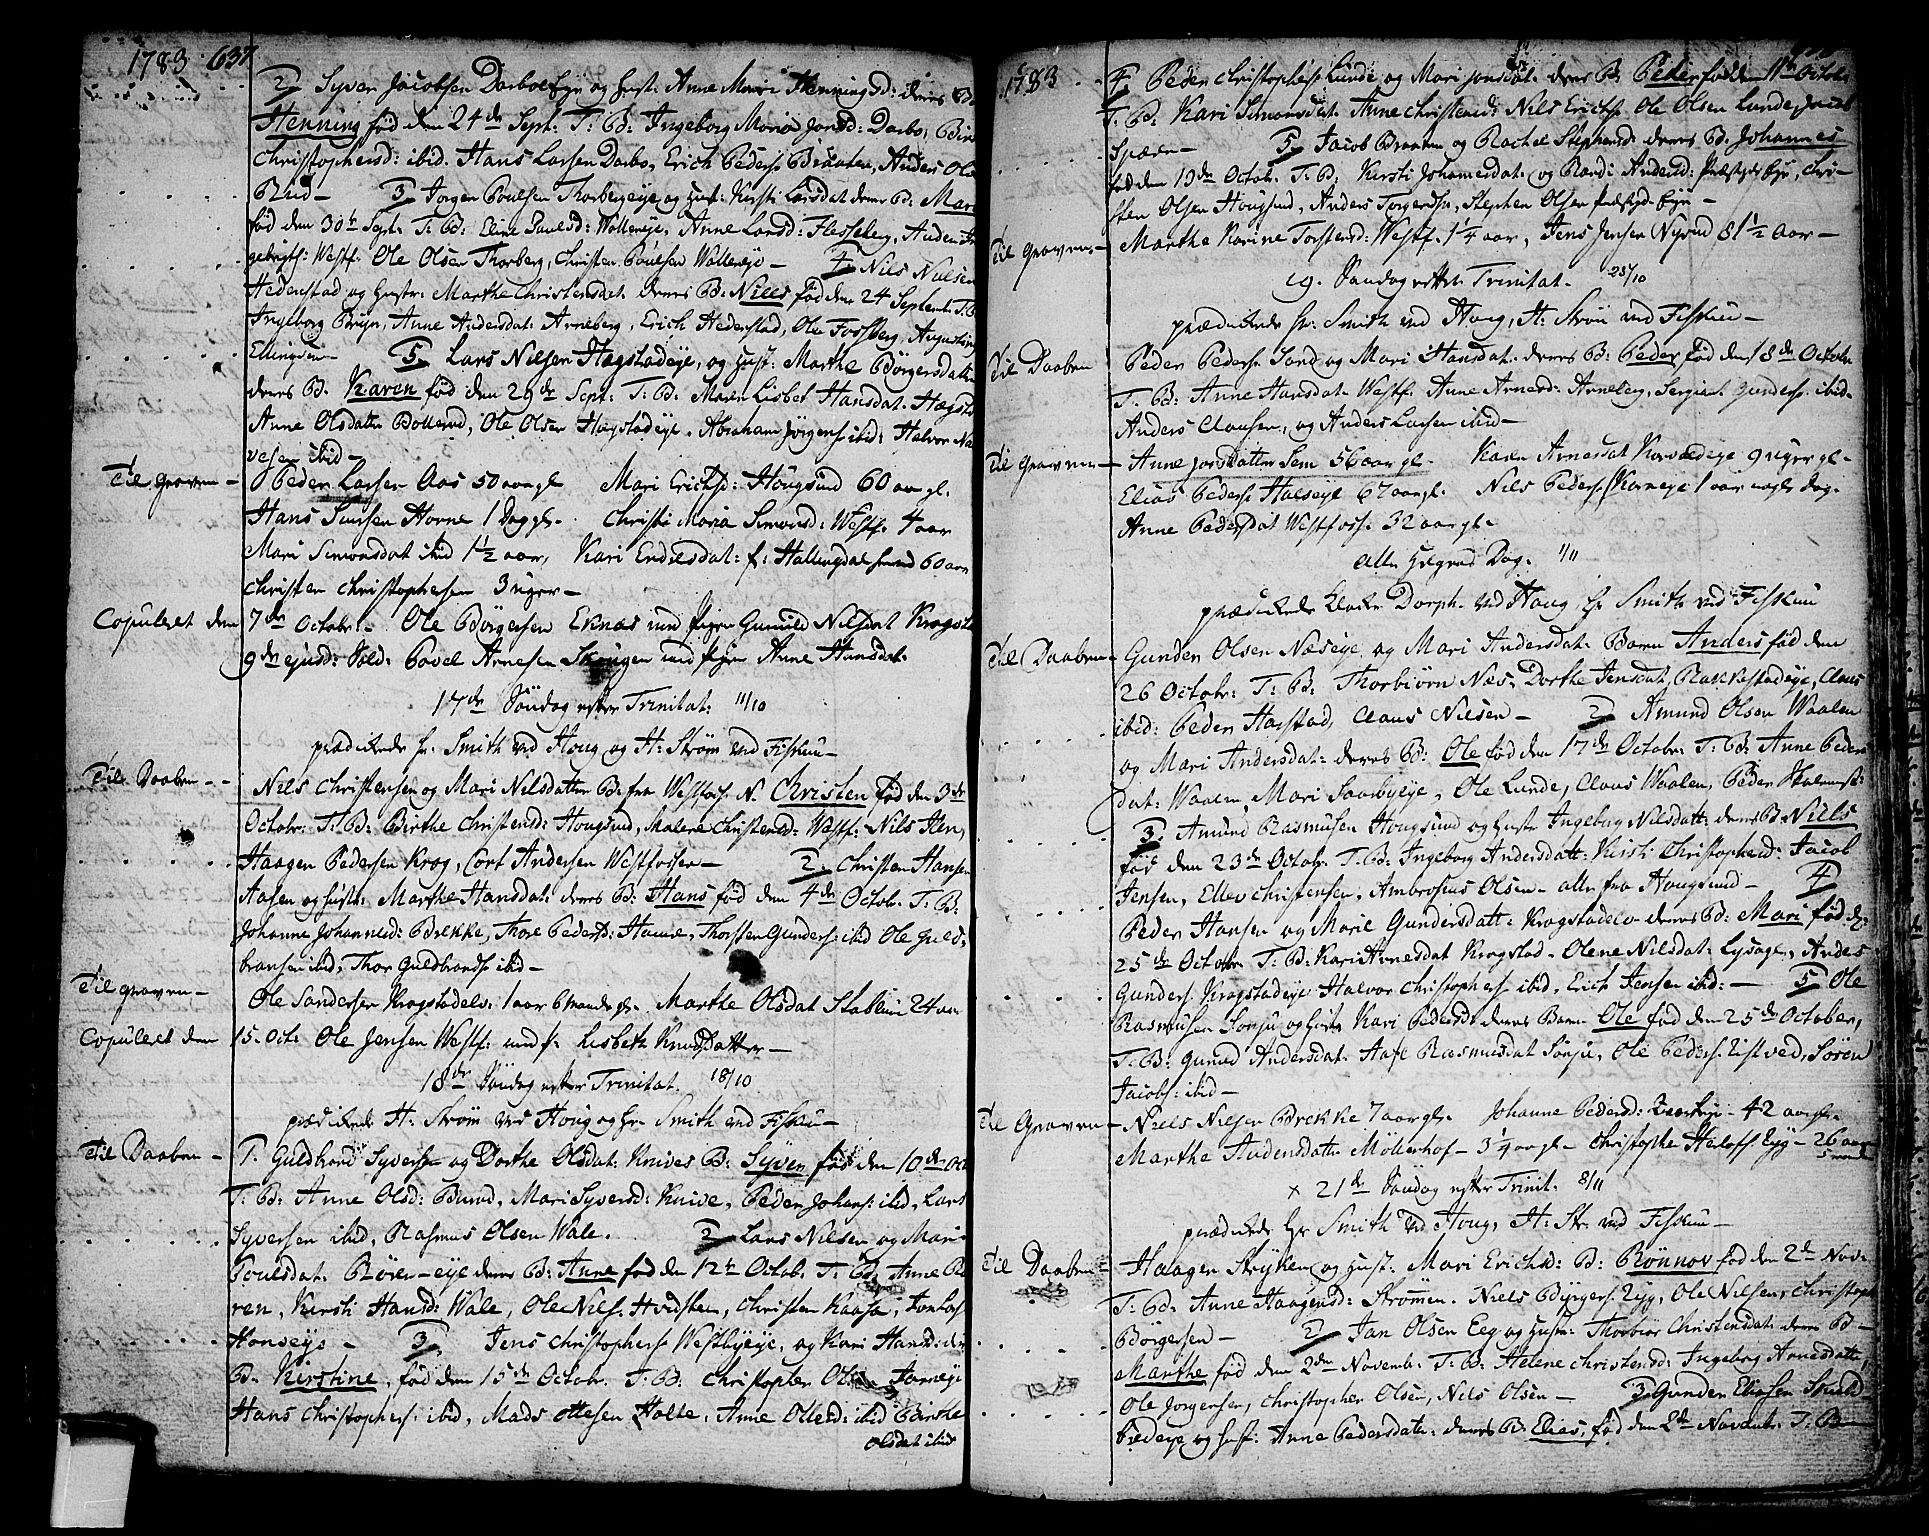 1783 637
2 Syver Jacobsen Darboe Eye og hust: Anne Maria Hennings d: deres B:
Henning fød den 24de Sept: T: B: Ingeborg Maria Jonsd: Darbo,
Christophersd: ibid. Hans Larsen Darbo, Erich Peders: Braaten, Anders Ols
Rud — 3 Jørgen Poulsen Thorbergeye og hust: Kirsti Larsdat deres B: Mari
fød den 30te Sept. T: B: Eline Paulsd: Wollereye, Anne Larsd: Flesseberg, Anders In
gebrigts: Westf. Ole Olsen Thorberg, Christen Poulsen Wollereye — 4 Nils Nielsen
Hedenstad og hustr: Marthe Christensdat deres B: Niels fød den 24 Septemb: T: B:
Ingeborg Bruin, Anne Andersdat: Arneberg, Erich Hedenstad, Ole Fossberg, Augustin
Ellingsen — 5 Lars Nilsen Hagstadeye, og hust: Marthe Børgersdatter
deres B: Karen fød den 29de Sept: T: B: Maren Lisbet Hansdat. Hægst
Anne Olsdatter Bollerud, Ole Olsen Hægstadeye. Abraham Jørgens: ibid: Halvor Na
vesen ibid —
Til Graven — Peder Larsen Aas 50 aar gl. Mari Erichsd: Hougsund 60 aar gl.
Hans Horne 1 Dag gl. Christi Maria Simonsd: Westf. 4 aar
Mari Simonsdat ibid 1½ aar, Kari Endresdat: f: Hallingdal 60 aar
Christen Christophersen 3 uger —
Copuleret den 7de Octobr: Ole Børgersen Eknæs med piger Gunild Nilsdat Krogst
9de ejusd: Sold: Povel Arnesen Skougen med pigen Anne Hansdat.
17de Søndag efter Trinitat: 11/10
prædikede hr. Smith ved Houg og H: Strøm ved Fiskum —
Til Daaben - - Niels Christensen og Mari Nilsdatter B: fra Westfos: N. Christen fød den 3de
Octobr: T: B: Birthe Christensd: Hougsund, Malene Christensd: Westf: Nils
Haagen Pedersen Krog, Cort Andersen Westfossen — 2. Christen Hansen
Aasen og hustr: Marthe Hansdat: deres B: Hans fød den 4de Octob. T: B:
Johanne Johannesd: Brekke, Thore Pedersd: Hamre, Thorsten Gunders: ibid Ole Guld-
bransen ibid, Thor Guldbrands: ibid —
Til Graven — Ole Sandersen Krogstadelv: 1 aar 6 maaneder gl. Marthe Olsdat 24 aar
Copuleret den 15. Oct: Ole Jensen Westf: med p: Lisbeth Knudsdatter —
18de Søndag efter Trinitat. 18/10
prædikede H: Strøm ved Houg og hr: Smith ved Fiskum —
Til Daaben — 1. Guldbrand Syversen og Dorthe Olsdat: Knives B: Syver fød den 10de Oct
T: B: Anne Olsd: Burud, Mari Syversd: Knive, Peder Johans: ibid, Lars
Syversen ibid, Rasmus Olsen Wale. 2 Lars Nielsen og Mari
Poulsdat: Børen-eye deres B: Anne fød den 12te Octob: T: B: Anne Bø
ren, Kirsti Hansd: Wale, Ole Niels: Hvidsteen, Christen Kaasa, Jon Lars
Honseye — 3. Jens Christophers: Westbyeye, og Kari Hansd: deres
B: Kirstine, fød den 15de Octobr. T: B: Christopher Olsen
Hans Christophers: ibid, Mads Ottesen Holte, Anne Ottersd: ibid Birthe
Olsdat ibid
1783
4 Peder Christophers: Lunde og Mari Jonsdat: deres B: Peder fødd 11te Octob:
T: B: Kari Simonsdat: Anne Christensd: Nils Erichs: Ole Olsen Lunde, Jacob
Spæren — 5 Jacob Braaten og Rachel Stephensd: deres B: Johannes
fød den 19de Octob. T: B: Kirsti Johannesdat: og Randi Andersd: Præstgds Eye, Chri-
sten Olsen Hougsund, Anders Torgersen, Stephen Olsen Præstgd: Eye —
Til Graven — Marthe Karine Torstensd: Westf: 1¼ aar, Jens Jensen Nyrud 81½ aar —
19. Søndag efter Trinitat. 25/10
prædikede hr. Smith ved Houg, H: Strøm ved Fiskum —
Til Daaben Peder Peders: Sand og Mari Hansdat: deres B: Peder fød den 18de Octobr
T: B: Anne Hansdat: Westf. Anne Arnesd: Arneberg, Sergiant Gunders: ibid.
Anders Clausen, og Anders Larsen ibid —
Til Graven — Anne Jonsdatter Sem 56 aar gl. Karen Arnesdat Korvaldeye 9 uger gl.
Elias Peders: Halseye 67 aar gl. Nils Peders: Korneye 1 aar nogle dag.
Anne Pedersdat Westfoss. 32 aar gl.
alle Helgens Dag. 1/11
prædikede Dorph. ved Houg, hr Smith ved Fiskum
Til Daaben — Gunder Olsen Næseye, og Mari Andersdat: Barn Anders fød den
26 Octobr: T: B: Thorbiørn Næs, Dorthe Jensdat, Rakkestadeye, Claus
ibid: Peder Hagstad, Claus Nilsen — 2 Amund Olsen Waalen
og Mari Andersdat: deres B: Ole fød den 17de Octobr: T: B: Anne Peders
dat: Waalen, Mari Saasbyeye, Ole Lunde, Claus Waalen, Peder
3 Amund Rasmusen Hougsund og hustr Ingeborg Nilsdatt: deres B: Niels
fød den 23de Octobr. T: B: Ingeborg Andersdatt: Kirsti Christophersd: Jacob
Jensen, Ellev Christensen, Ambrosius Olsen — alle fra Hougsund — 4
Peder Hansen og Marie Gundersdatt: Krogstadelv deres B: Mari fød d:
25de Octobr T: B: Kari Arnesdat Krogstad. Olene Nilsdat: Lysager, Anders
Gunders: Krogstadeye Halvor Christophers: ibid, Erich Jensen ibid: — 5 Ole
Rasmusen Sonju og hustr Kari Pedersd: deres Barn Ole fød den 25de October,
T: B: Gunild Andersdat: Aase Rasmusdat Sonju, Ole Peders: Eistved, Søren
Jacobs: ibid —
Til Graven — Niels Nilsen Brekke 7 aar gl. Johanne Pedersd: 42 aar gl.
Marthe Andersdatter Møllerhof — 3¼ aar gl — Christopher Herlofs: Eyg — 26 aar
5 maan
x 21de Søndag efter Trinit. 8/11
prædikede hr Smith ved Houg, H: Str: ved Fiskum —
Til Daaben — Haagen Stryken og hust. Mari Erichsd: B: Rønnov fød den 2de Nov:
T: B: Anne Haagensd: Strømen. Niels Børgers: Eyg, Ole Nilsen, Christoph
Børgersen — 2 Jan Olsen Eeg og hustr: Thorbiør Christensdat: deres B —
Marthe fød den 2den Novemb: T: B: Helene Christensd: Ingeborg Arnesdatte
Ole Jørgensen, Christopher Olsen, Nils Olsen — 3. Gunder Eliasen Skuld-
og hust: Anne Pedersdatt: deres B: Elias, fød den 2de Novemb: T: B —